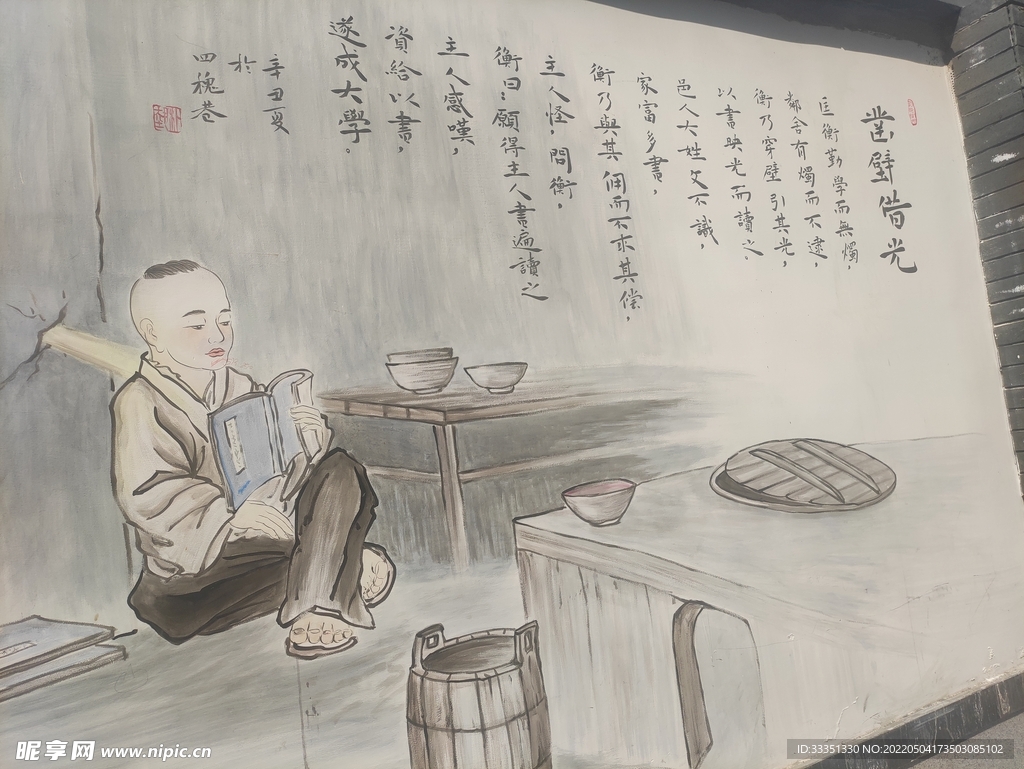 凿壁偕光
匡衡勤學而無燭，
鄰舍有燭而不逮，
衡乃穿壁引其光，
以書映光而讀之、
邑人大姓文不識，
家富多書，
衡乃與其佣而不求其償，
主人怪，問衡，
衡曰：願得主人書遍讀之
主人感嘆，
資給以書，
遂成大學。
辛丑夏
於
四槐巷
昵享网 www.nipic.cn
ID:33351330 NO:20220504173503085102